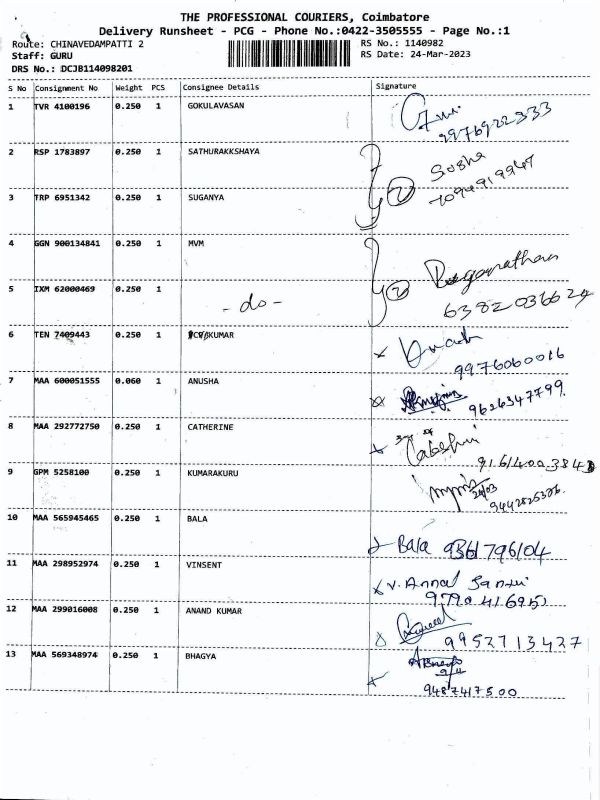 THE PROFESSIONAL COURIERS, Coimbatore
Delivery Runsheet - PCG - Phone No.:0422-3505555 - Page No.:1
Route: CHINAVEDAMPATTI 2
RS No.: 1140982
Staff: GURU
RS Date: 24-Mar-2023
DRS No.: DCJB114098201
S No Consignment No Weight PCS Consignee Details Signature
1 TVR 4100196 0.250 1 GOKULAVASAN
9976922333
2 RSP 1783897 0.250 1 SATHURAKKSHAYA
2 Sosha
7094919947
3 TRP 6951342 0.250 1 SUGANYA
4 GGN 900134841 0.250 1 MVM
2
5 IXM 62000469 0.250 1
- do -
6382036624
6 TEN 7409443 0.250 1 KUMAR
9976060016
7 MAA 600051555 0.060 1 ANUSHA
9626347799
8 MAA 292772750 0.250 1 CATHERINE
9 GPM 5258100 0.250 1 KUMARAKURU
24/03
9442825326
10 MAA 565945465 0.250 1 BALA
Bala 9361796104
11 MAA 298952974 0.250 1 VINSENT
V. Annal Santhi
9790416951
12 MAA 299016008 0.250 1 ANAND KUMAR
9952713427
13 MAA 569348974 0.250 1 BHAGYA
9487417500